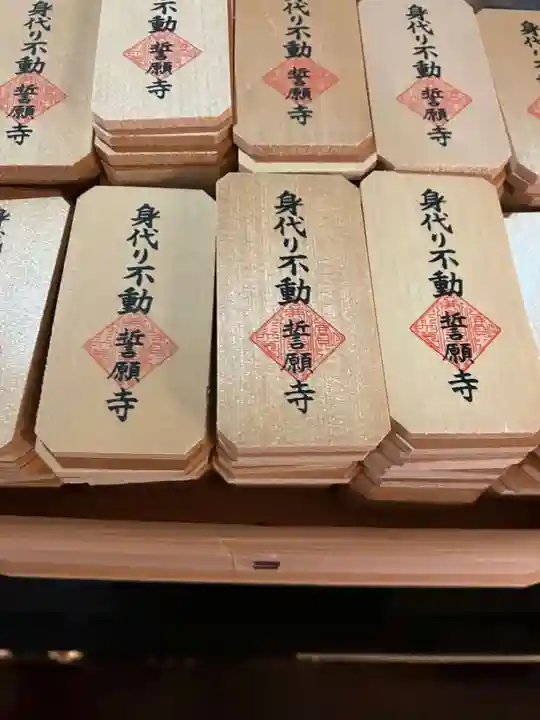 身代り不動 誓願寺
身代り不動 誓願寺
身代り不動 誓願寺
身代り不動 誓願寺
身代り不動 誓願寺
身代り不動 誓願寺
身代り不動 誓願寺
身代り不動 誓願寺